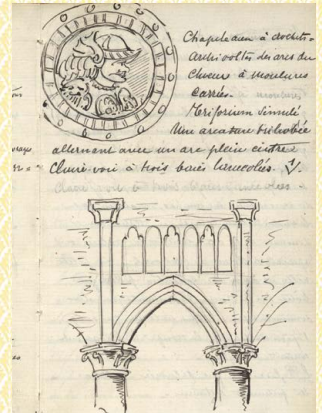 Chapiteaux à crochets.
Archivoltes des arcs du
Chœur à moulures
carrées.
Triforium simulé
Une arcature trilobée
alternant avec un arc plein cintre
Claire voie à trois baies lancéolées.